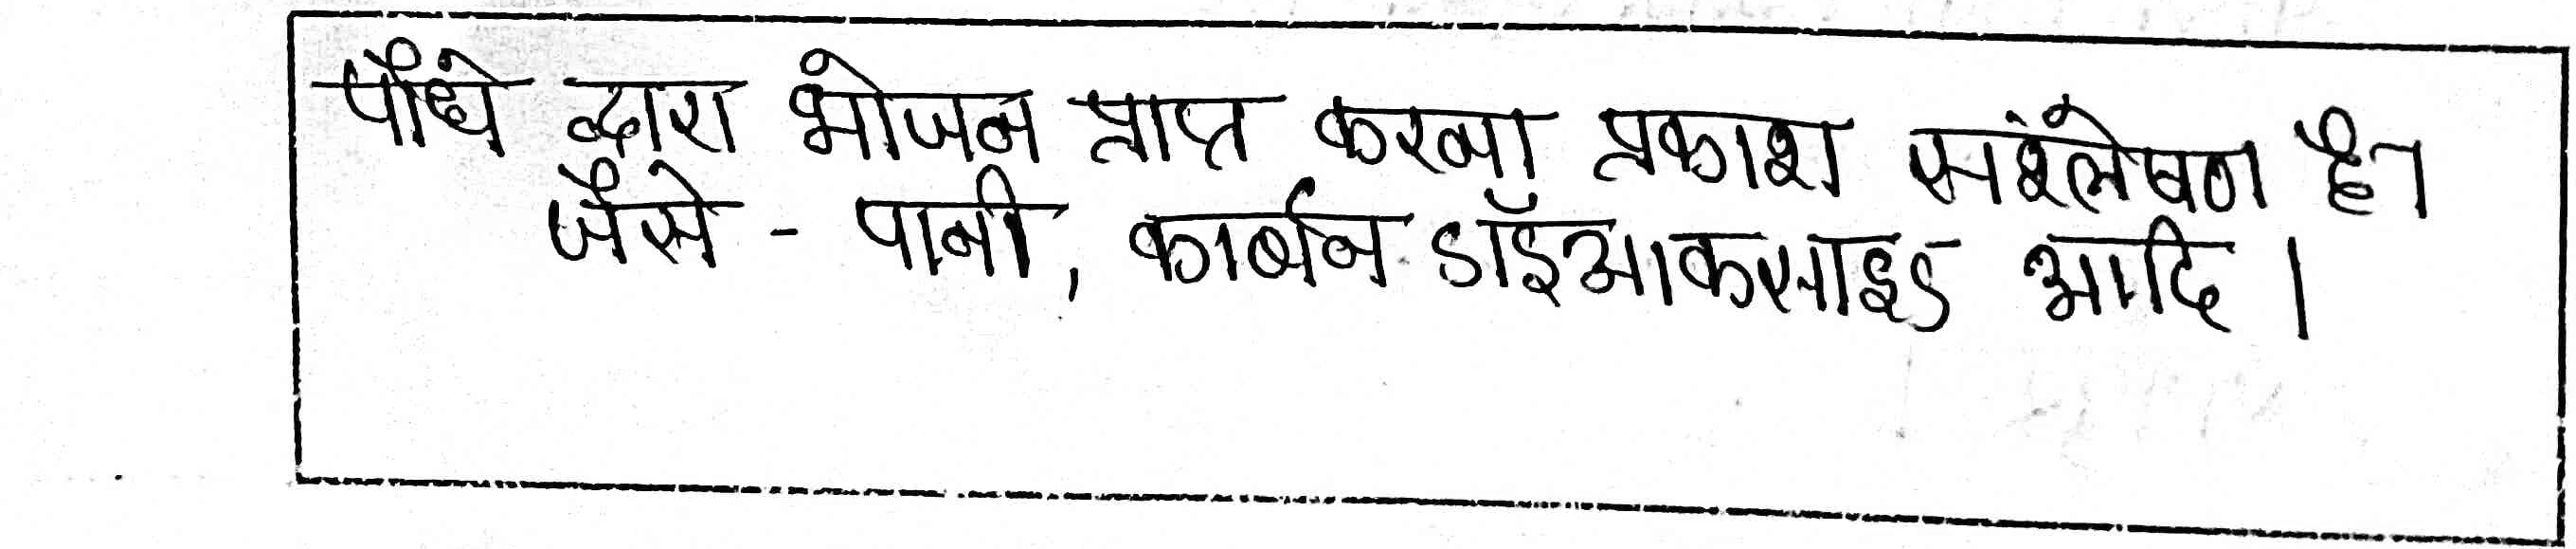 पौधे द्वारा भोजन प्राप्त करना प्रकाश संश्लेषण है।
जैसे - पानी, कार्बन डॉइआकसाइड आदि।